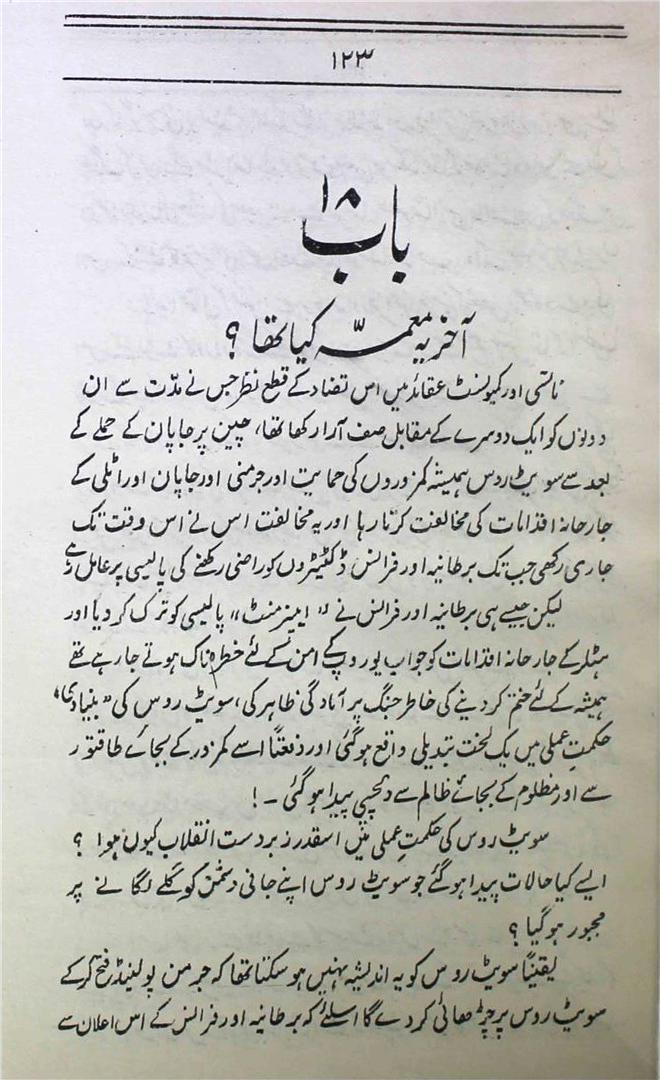 ۱۲۳
باب ۱۸
آخر یہ معمہّ کیا تھا ؟
نالتسی اور کمیونسٹ عقائد میں اس تضاد کے قطع نظر جس نے مدّت سے ان
دونوں کو ایک دوسرے کے مقابل صف آرا رکھا تھا، چین پر جاپان کے حملے کے
بعد سے سویٹ روس ہمیشہ کمزوروں کی حمایت اور جرمنی اور جاپان اور اٹلی کے
جارحانہ اقدامات کی مخالفت کرتا رہا اور یہ مخالفت اس نے اس وقت تک
جاری رکھی جب تک برطانیہ اور فرانس ڈکٹیٹروں کو راضی رکھنے کی پالیسی پر عامل رہے
لیکن جیسے ہی برطانیہ اور فرانس نے "اپیزمنٹ" پالیسی کو ترک کر دیا اور
ہٹلر کے جارحانہ اقدامات کو جواب یورپ کے امن کے لئے خطرہ ناک ہوتے جا رہے تھے
ہمیشہ کے لئے ختم کر دینے کی خاطر جنگ پر آمادگی ظاہر کی، سویٹ روس کی "بنیادی"
حکمت عملی میں یک لخت تبدیلی واقع ہو گئی اور دفعتاً اسے کمزور کے بجائے طاقتور
سے اور مظلوم کے بجائے ظالم سے دلچسپی پیدا ہو گئی ۔!
سویٹ روس کی حکمتِ عملی میں اسقدر زبردست انقلاب کیوں ہوا ؟
ایسے کیا حالات پیدا ہو گئے جو سویٹ روس اپنے جانی دشمن کو گلے لگانے پر
مجبور ہو گیا ؟
یقیناً سویٹ روس کو یہ اندیشہ نہیں ہو سکتا تھا کہ جرمن پولینڈ فتح کر کے
سویٹ روس پر چڑھائی کر دے گا اسلئے کہ برطانیہ اور فرانس کے اس اعلان سے